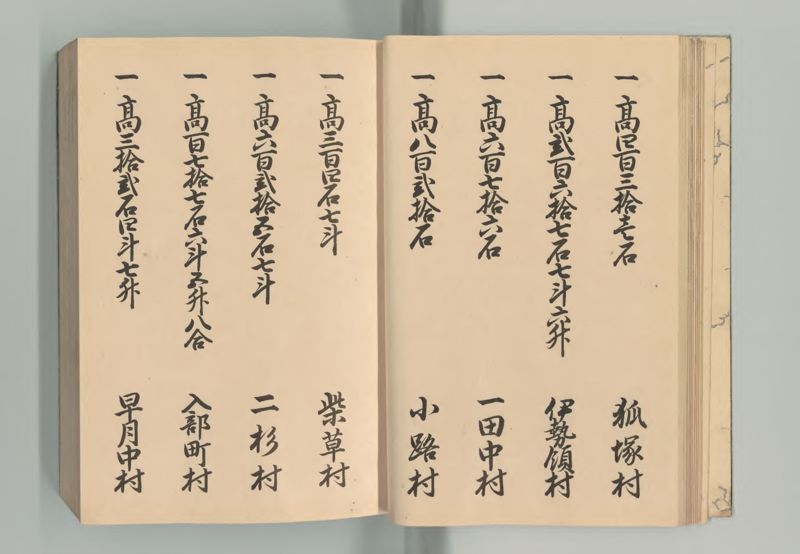 一 高四百三拾壱石 狐塚村
一 高弐百六拾七石七斗六升 伊勢領村
一 高六百七拾六石 一田中村
一 高八百弐拾石 小路村
一 高三百四石七斗 柴草村
一 高六百弐拾五石七斗 二杉村
一 高百七拾七石六斗五升八合 入部町村
一 高三拾弐石四斗七升 早月中村